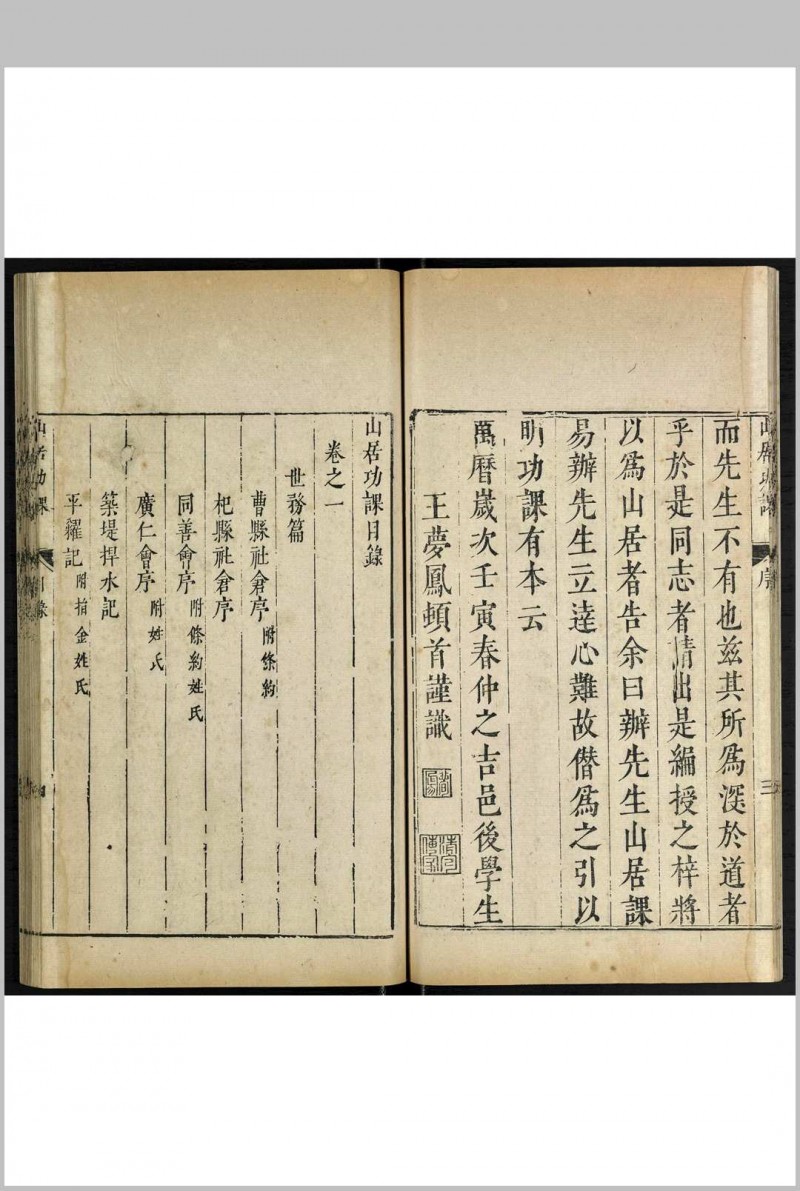 山居功課
序
三
而先生不有也茲其所爲深於道者
乎於是同志者請出是編授之梓將
以爲山居者告余曰辦先生山居課
易辦先生立達心難故僭爲之引以
明功課有本云
萬曆歲次壬寅春仲之吉邑後學生
王夢鳳頓首謹識
山居功課目錄
卷之一
世務篇
曹縣社倉序 附條約
杞縣社倉序
同善會序 附條約姓氏
廣仁會序 附姓氏
築堤捍水記
平糴記 附捐金姓氏
山居功課
目錄